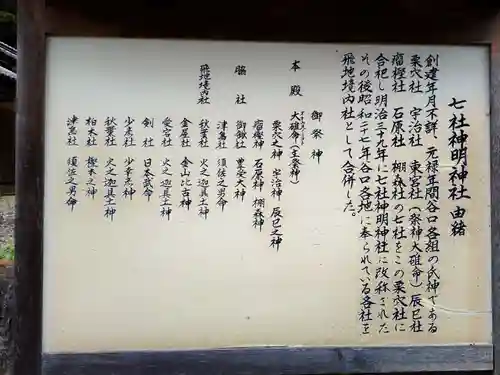 七社神明神社 由緒
創建年月不詳、元禄年間谷口各組の氏神である
粟穴社 宇治社 東宮社(祭神大碓命)辰巳社
瘤樫社 石原社 棚森社の七社をこの粟穴社に
合祀し明治三十九年に七社神明神社に改称された
その後昭和二十七年谷口各地に奉られている各社を
飛地境内社として合併した。
御祭神
本殿 大碓命(主祭神)
粟穴之神 宇治神 辰巳之神
瘤樫神 石原神 棚森神
脇社 御鍬社 豊受大神
津島社 須佐之男命
飛地境内社 秋葉社 火之迦具土神
金屋社 金山比古神
愛宕社 火之迦具土神
剣社 日本武命
少彦社 少彦名神
秋葉社 火之迦具土神
柏木社 樫木之神
津島社 須佐之男命